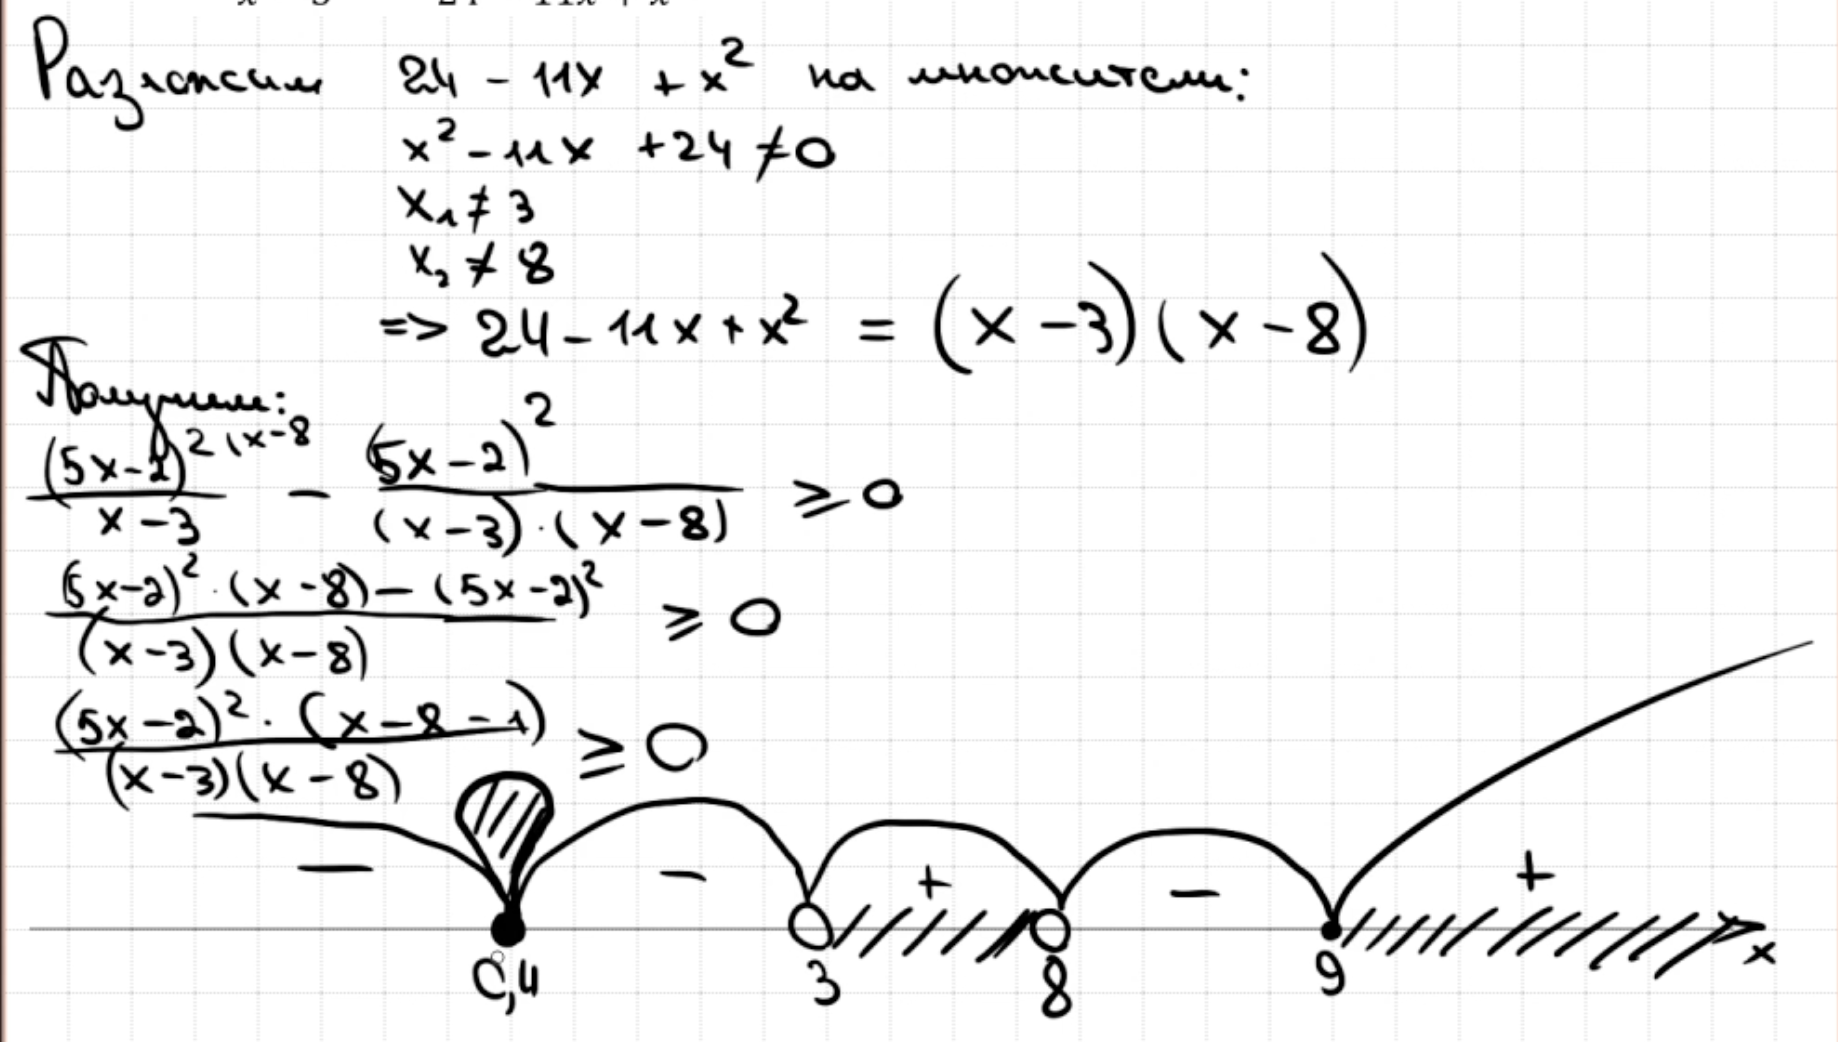 Разложим 24 - 11x + x² на множители:
x² - 11x + 24 ≠ 0
x₁ ≠ 3
x₂ ≠ 8
=> 24 - 11x + x² = (x - 3)(x - 8)
Получим:
(5x-2)² (x-8 / (x-3) - (5x-2)² / ((x-3)·(x-8)) ≥ 0
((5x-2)²·(x-8) - (5x-2)²) / ((x-3)(x-8)) ≥ 0
((5x-2)²·(x-8-1)) / ((x-3)(x-8)) ≥ 0
- - + - +
0,4 3 8 9 x